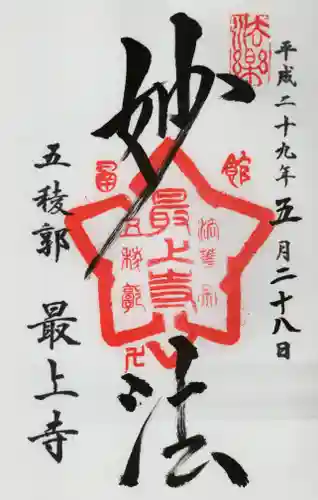 平成二十九年五月二十八日
法樂
妙法
函館
最上寺
法華宗
五稜郭
五稜郭 最上寺